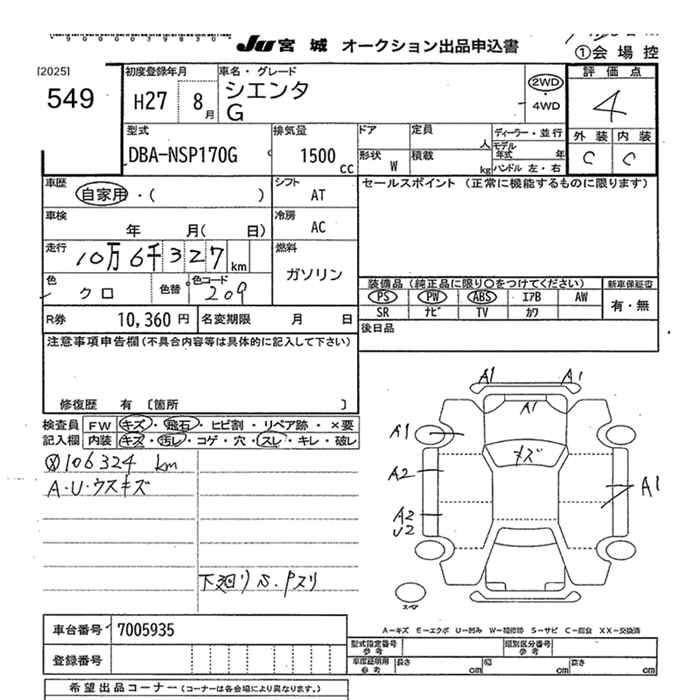 JU 宮城 オークション出品申込書
①会場控
[2025]
549
初度登録年月
H27 8月
車名・グレード
シエンタ
G
2WD
4WD
評価点
4
外装 内装
C C
型式
DBA-NSP170G
排気量
1500 cc
ドア
定員 人
ディーラー・並行
形状 W
積載 kg
モデル年式 年
ハンドル 左・右
車歴
自家用・( )
シフト
AT
セールスポイント (正常に機能するものに限ります)
車検
年 月( 日)
冷房
AC
走行
10万6千327km
燃料
ガソリン
色
クロ
色替
色コード
209
装備品 (純正品に限り○をつけてください)
新車保証書
PS PW ABS エアB AW
SR ナビ TV カワ
有・無
R券
10,360 円
名変期限 月 日
後日品
注意事項申告欄(不具合内容等は具体的に記入して下さい)
修復歴 有 〔箇所 〕
検査員 FW キズ・飛石・ヒビ割・リペア跡・×要
記入欄 内装 キズ・汚レ・コゲ・穴・スレ・キレ・破レ
106324 km
A・U・ウスキズ
下廻りS.Pスリ
A1 A1
A1
A1
メズ
A2
A1
A2
U2
スペア
A―キズ E―エクボ U―凹み W―補修跡 S―サビ C―腐食 XX―交換済
車台番号
7005935
型式指定番号 参考
類別区分番号 参考
登録番号
車庫証明用 参考
長さ cm 幅 cm 高さ cm
希望出品コーナー(コーナーは各会場により異なります。)